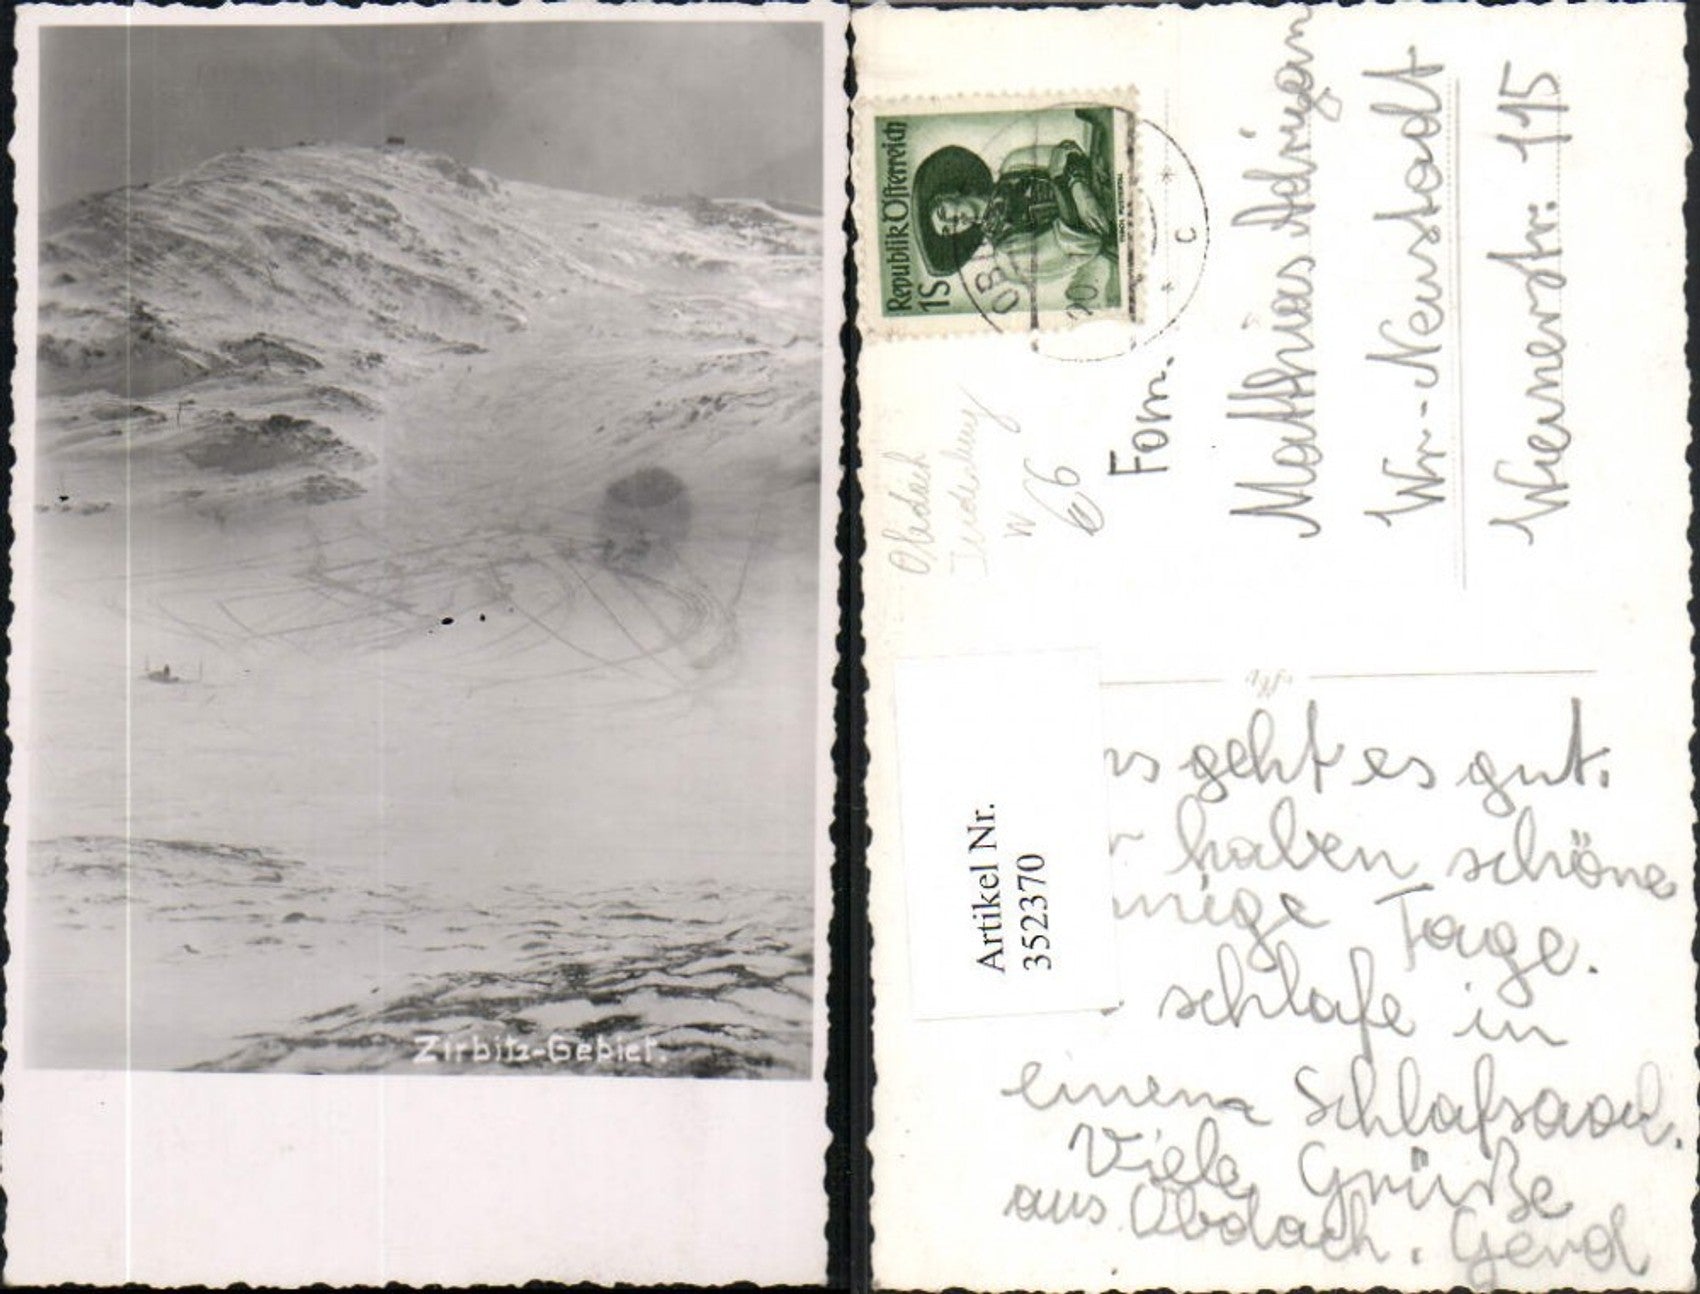 Zirbitz-Gebiet.
Republik Österreich
1S
C
Obdach
Judenburg
66
Fam.
Matthias Adrigan
Wr.-Neustadt
Wienerstr: 115
Agfa
Artikel Nr.
352370
ns geht es gut.
haben schöne
nnige Tage.
schlafe in
einem Schlafsaal.
Viele Grüße
aus Obdach. Gerd